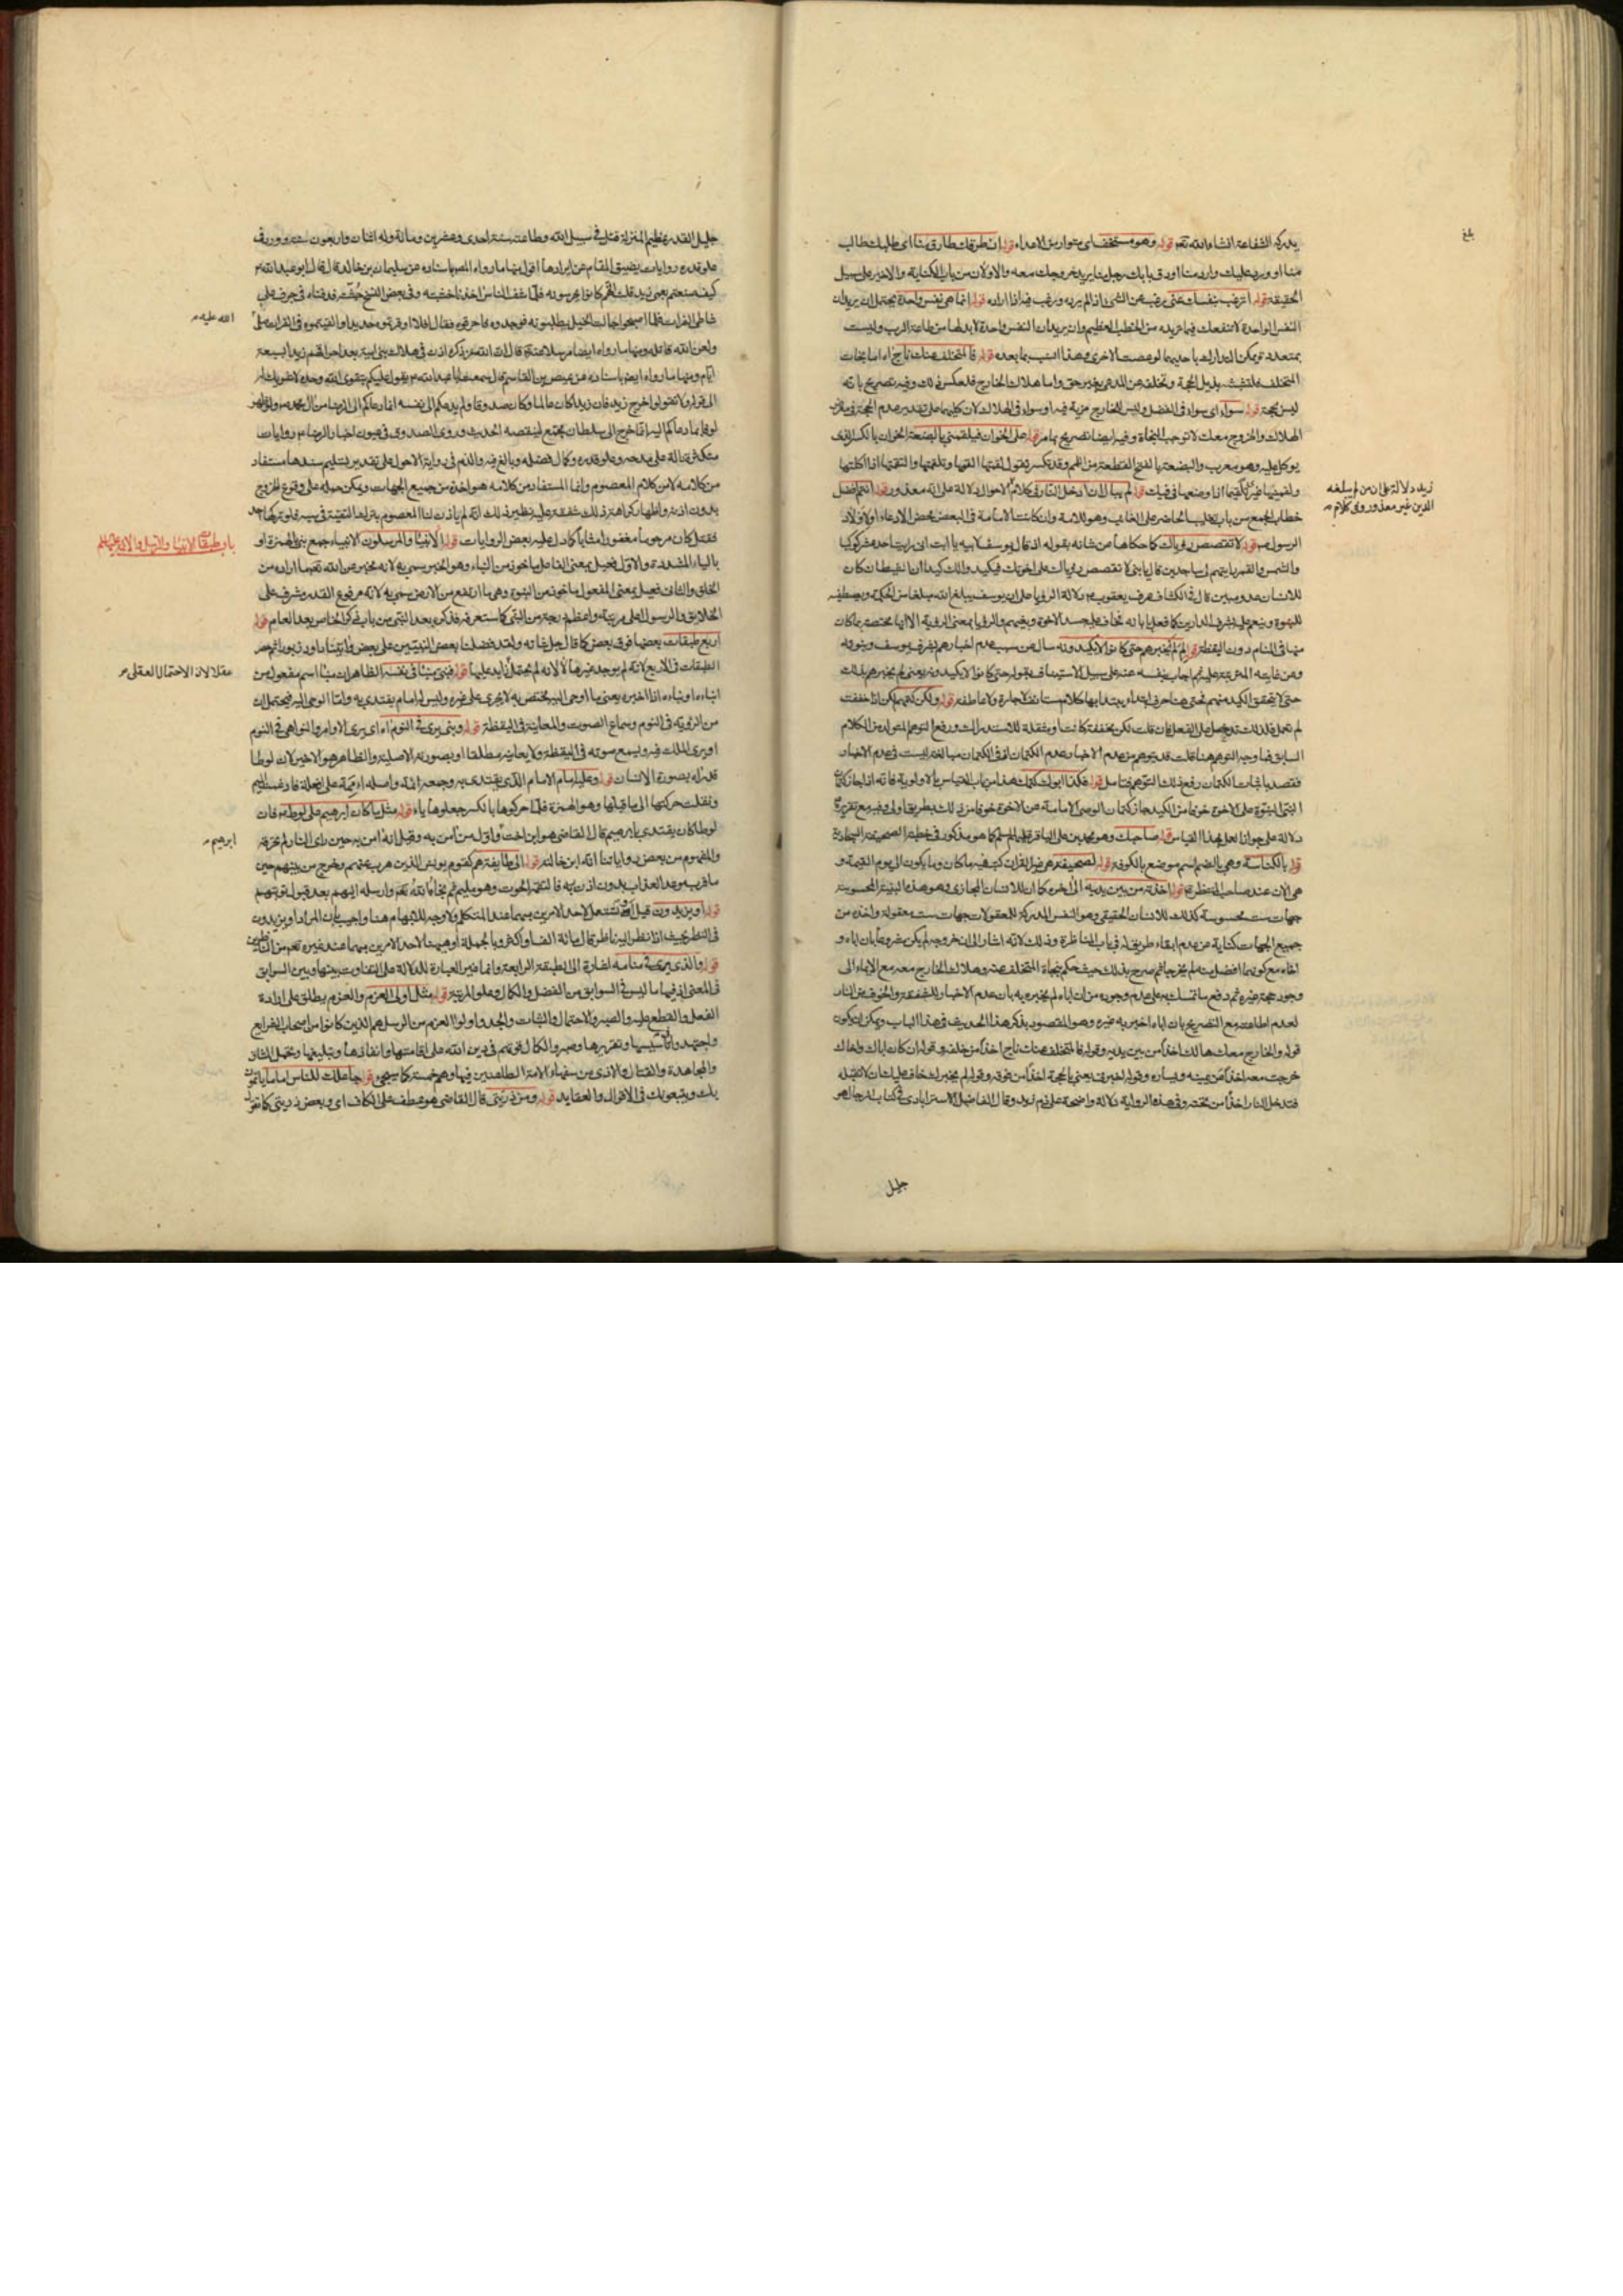 يدركه الشفاعة انشاء الله تعالى قوله وهو مستخفى اى متوار من الاعداء قوله ان طرقك طارق منا اى طلبك طالب
منا او ورد عليك وارد منا او دق بابك رجل منا يريد خروجك معه والاولان من باب الكناية والاخير على سبيل
الحقيقة قوله اترغب بنفسك عنى رغب عن الشىء اذا لم يرده ورغب فيه اذا اراده قوله انما هى نفس واحدة يحتمل ان يريد ان
النفس الواحدة لا تنفعك فيما نريده من الخطب العظيم وان يريد ان النفس واحدة لابد لها من طاعة الرب وليست
بمتعددة يمكن التدارك باحديهما لو عصت الاخرى وهذا انسب بما بعده قوله فالمتخلف عنك ناج اه اما نجات
المتخلف فلتشبثه بذيل الحجة وتخلفه عن المدعى بغير حق واما هلاك الخارج فلعكس ذلك وفيه تصريح بانه
ليس بحجة قوله سواء اى سواء فى الفضل وليس للخارج مزية فيه او سواء فى الهلاك لان كليهما على تقدير عدم الحجة فى
الهلاك والخروج معك لا توجب النجاة وفيه ايضا تصريح بما مر قوله على الخوان فيلقمنى البضعة الخوان بالكسر الذى
يوكل عليه وهو معرب والبضعة بالفتح القطعة من اللحم وقد تكسر تقول لقمتها القمها وتلقمتها والتقمتها اذا اكلتها
ولقمتها غيرى تلقيما اذا وضعتها فى فيك قوله لم يبال ان ادخل النار فى كلام الاحوال دلالة على انه معذور قوله انتم افضل
زيد دلالة على ان من لم يبلغه
الدين غير معذور وفى كلام
خطاب الجمع من باب تغليب الحاضر على الغائب وهو للائمة وان كانت الامامة فى البعض بمحض الادعاء او لاولاد
الرسول ص قوله لا تقصص رؤياك كما حكاها عن شانه بقوله اذ قال يوسف لابيه يا ابت انى رايت احد عشر كوكبا
والشمس والقمر رايتهم لى ساجدين قال يا بنى لا تقصص رؤياك على اخوتك فيكيدوا لك كيدا ان الشيطان كان
للانسان عدو مبين قال فى الكشاف عرف يعقوب دلالة الرؤيا على ان يوسف يبلغ الله مبلغا من الحكمة ويصطفيه
للنبوة وينعم عليه بشرف الدارين كما فعل بابائه فخاف عليه حسد الاخوة وبغيهم والرؤيا بمعنى الرؤية الا انها مختصة بما كان
منها فى المنام دون اليقظة قوله لم لم يخبرهم حتى كانوا لا يكيدونه سال عن سبب عدم اخبارهم بشرف يوسف ونبوته
لم تعمل فلذلك تدخل على الفعل فان قلت لكن مخففة كانت او مثقلة للاستدراك ودفع التوهم المتولد من الكلام
السابق فما وجه التوهم هنا قلت قد يتوهم من عدم الاخبار عدم الكتمان اذ فى الكتمان مبالغة ليست فى عدم الاخبار
فقصد باثبات الكتمان رفع ذلك التوهم فتامل قوله فكذا ابوك كتمك هذا من باب القياس بالاولوية فانه اذا جاز كتمان
النبى النبوة على الاخوة خوفا من الكيد جاز كتمان الوصى الامامة عن الاخوة خوفا من ذلك بطريق اولى وفيه مع تقريره
دلالة على جواز العمل بهذا القياس قوله صاحبك وهو محمد بن على الباقر عليهما السلم كما هو مذكور فى خطبة الصحيفة السجادية
قوله بالكناسة وهى بالضم اسم موضع بالكوفة قوله لصحيفة هى غير القران كتب فيه ما كان وما يكون الى يوم القيمة و
هى الان عند صاحب المنتظر قوله اخذته من بين يديه الى اخره كما ان للانسان المجازى وهو هذا البنية المحسوسة
جهات ست محسوسة كذلك للانسان الحقيقى وهو النفس المدركة للمعقولات جهات ست معقولة واخذه من
جميع الجهات كناية عن عدم ابقاء طريق له فى باب المناظرة وذلك لانه اشار الى ان خروجه لم يكن مشروعا بان اباه و
اخاه مع كونهما افضل منه لم يخرجا ثم صرح بذلك حيث حكم بنجاة المتخلف عنه وهلاك الخارج معه مع الايماء الى
وجود حجة غيره ثم دفع ما تمسك به على عدم وجوده من ان اباه لم يخبره به بان عدم الاخبار للشفقة والخوف من النار
لعدم اطاعته مع التصريح بان اباه اخبر به غيره وهو المقصود بذكر هذا الحديث فى هذا الباب ويمكن ان يكون
قوله والخارج معك هالك اخذا من بين يديه وقوله فالمتخلف عنك ناج اخذا من خلفه وقوله ان كان اباك واخاك
خرجت معه اخذا عن يمينه ويساره وقوله اخبرنى يعنى بالحجة اخذا من فوقه وقوله لم يخبرك خاف عليك ان لا تقبله
فتدخل النار اخذا من تحته وفى هذه الرواية دلالة واضحة على ذم زيد وقال الفاضل الاسترابادى فى كتاب الرجال هو
جليل
بلغ
جليل القدر عظيم المنزلة قتل فى سبيل الله وطاعته سنة احدى وعشرين ومائة وله اثنان واربعون سنة وورد فى
علو قدره روايات يضيق المقام عن ايرادها اقول منها ما رواه المص باسناده عن سليمان بن خالد قال قال ابو عبد الله
كيف صنعتم بعمى زيد قلت انهم كانوا يحرسونه فلما شف الناس اخذنا خشبته وفى بعض النسخ جثته فدفناه فى جرف على
شاطى الفرات فلما اصبحوا جالت الخيل يطلبونه فوجدوه فاحرقوه فقال افلا اوقرتموه حديدا والقيتموه فى الفرات صلى
الله عليه
ولعن الله قاتله ومنها ما رواه ايضا مرسلا عنه قال ان الله عز ذكره اذن فى هلاك بنى امية بعد احراقهم زيدا بسبعة
ايام ومنها ما رواه ايضا باسناده عن عيص بن القاسم قال سمعت ابا عبد الله يقول عليكم بتقوى الله وحده لا شريك له
الى قوله ولا تقولوا خرج زيد فان زيدا كان عالما وكان صدوقا ولم يدعكم الى نفسه انما دعاكم الى الرضا من ال محمد ص ولو ظهر
لوفا بما دعاكم اليه انما خرج الى سلطان مجتمع لينقصه الحديث وروى الصدوق فى عيون اخبار الرضا روايات
متكثرة دالة على مدحه وعلو قدره وكمال فضله وبالغ فيه والذم فى رواية الاحول على تقدير تسليم سندها مستفاد
من كلامه لا من كلام المعصوم وانما المستفاد من كلامه هو اخذه من جميع الجهات ويمكن حمله على وقوع الخروج
فقتل كان مرحوما مغفورا مثابا كما دل عليه بعض الروايات قوله الانبياء والمرسلون الانبياء جمع نبى بالهمزة او
باب طبقات الانبياء والرسل والائمة عليهم السلم
بالياء المشددة والاول فعيل بمعنى الفاعل ماخوذ من النباء وهو الخبر سمى به لانه مخبر عن الله تعالى ما اراده من
الخلق والثانى فعيل بمعنى المفعول ماخوذ من النبوة وهى ما ارتفع من الارض سمى به لانه مرفوع القدر مشرف على
الخلايق والرسول اعلى مرتبة واعظم درجة من النبى كما ستعرفه فذكره بعد النبى من باب ذكر الخاص بعد العام قوله
اربع طبقات بعضها فوق بعض كما قال جل شانه ولقد فضلنا بعض النبيين على بعض واتينا داود زبورا ثم حصر
الطبقات فى الاربع لانه لم يوجد غيرها لا لانه لم يحتمل الزايد عليها قوله فنبى منبأ فى نفسه الظاهر ان منبا اسم مفعول من
عقلا لان الاحتمال العقلى
انباءه او نباه اذا اخبره يعنى ما اوحى اليه مختص به لا يجرى على غيره وليس له امام يقتدى به واما الوحى اليه فيحتمل ان
من الروية فى النوم وسماع الصوت والمعاينة فى اليقظة قوله ونبى يرى فى النوم اه اى يرى الاوامر والنواهى فى النوم
او يرى الملك فيه ويسمع صوته فى اليقظة ولا يعاينه مطلقا او بصورته الاصلية والظاهر هو الاخير لان لوطا
قد راه بصورة الانسان قوله وعليه امام الامام الذى يقتدى به وجمعه ائمة واصله اءممة على افعلة فادغمت الميم
ونقلت حركتها الى ما قبلها وهو الهمزة فلما حركوها بالكسر جعلوها ياء قوله مثل ما كان ابرهيم على لوط فان
لوطا كان يقتدى بابرهيم قال القاضى هو ابن اخته واول من امن به وقيل انه امن به حين راى النار لم تحرقه
ابرهيم
والمفهوم من بعض رواياتنا انه ابن خالته قوله الى طايفة هم كقوم يونس الذين هرب عنهم وخرج من بينهم حين
ما قرب موعد العذاب بدون اذن ربه فالتقمه الحوت وهو مليم ثم نجاه الله تعالى وارسله اليهم بعد قبول توبتهم
قوله او يزيدون قيل او تستعمل لاحد الامرين مبهما عند المتكلم ولا وجه للابهام هنا واجيب بان المراد او يزيدون
قوله والذى يرى فى منامه اشارة الى الطبقة الرابعة وانما غير العبارة للدلالة على التفاوت بينها وبين السوابق
فى المعنى اذ فيها ما ليس فى السوابق من الفضل والكمال وعلو المرتبة قوله مثل اولى العزم والعزم يطلق على ارادة
الفعل والقطع عليه والصبر والاحتمال والثبات والجد واولوا العزم من الرسل هم الذين كانوا من اصحاب الشرايع
والمجاهدة والقتال والاذى من سفهاء الامة الطاعنين فيها وهم خمسة كما سيجىء قوله جاعلك للناس اماما ياتمون
بك ويتبعونك فى الاقوال والعقايد قوله ومن ذريتى قال القاضى هو عطف على الكاف اى وبعض ذريتى كما تقول